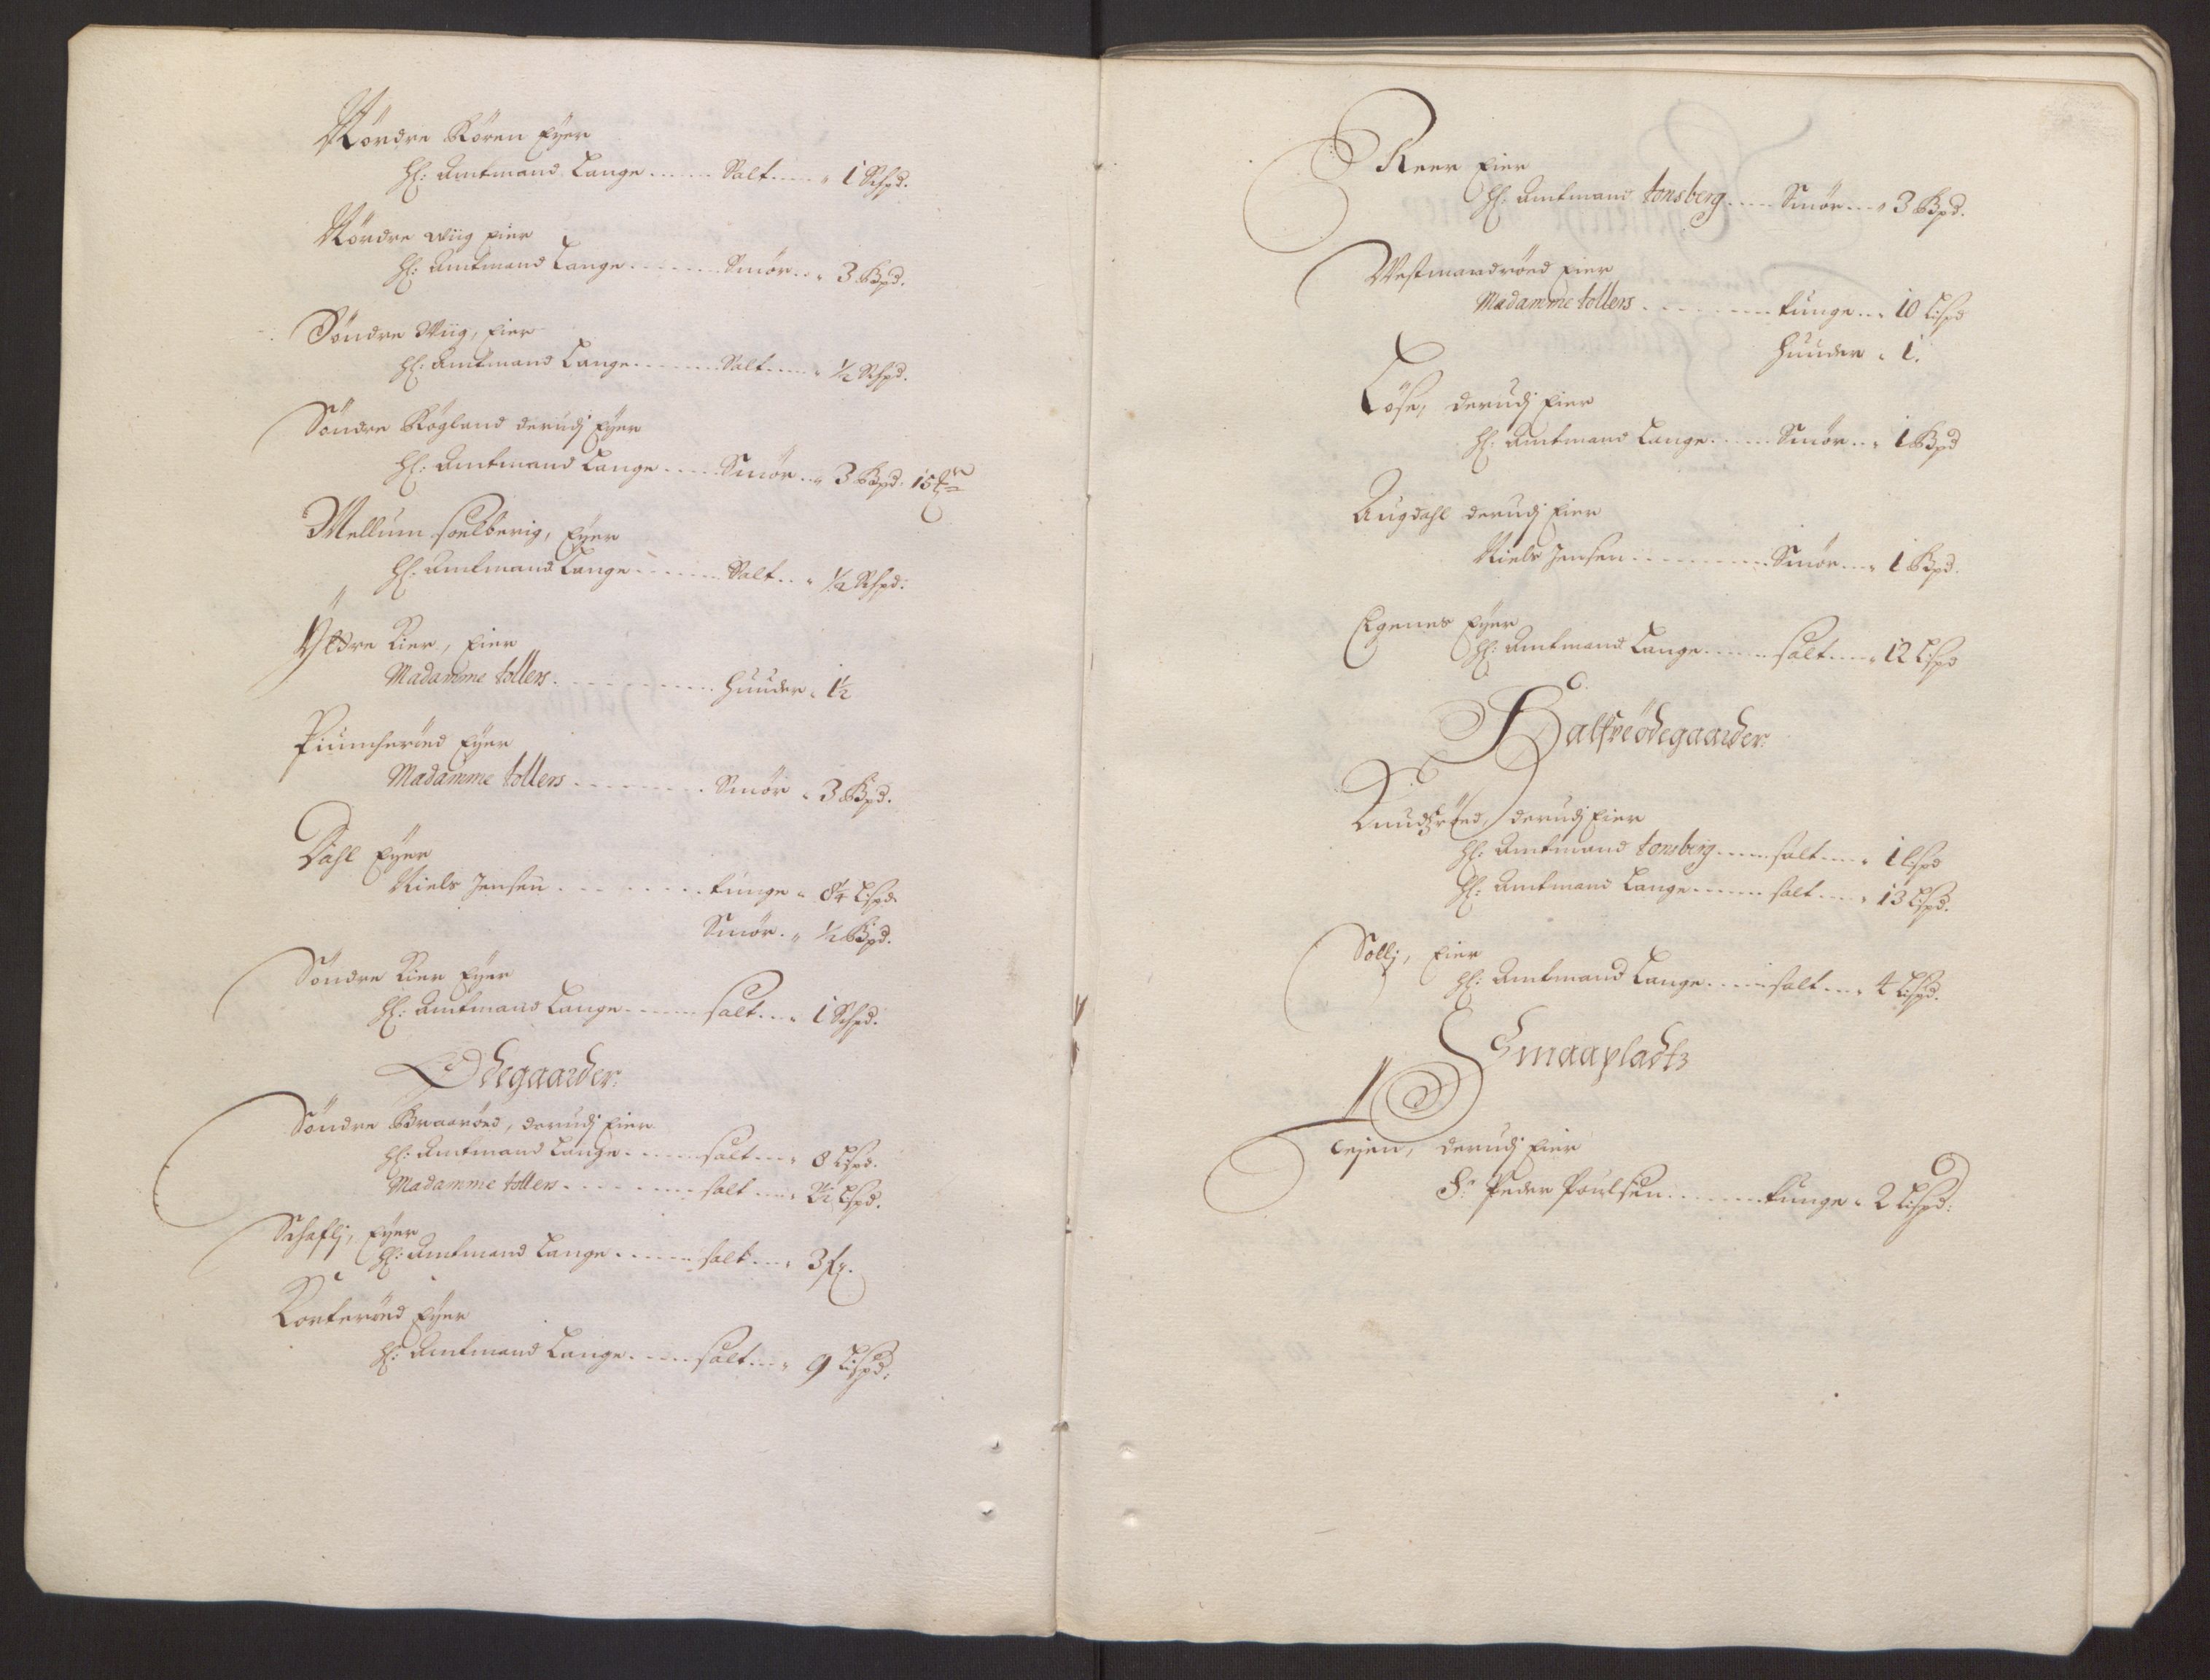 Nördre Rören Eÿer
H: Amtmand Lange ...... Salt .... " 1 Schpd.
Nördre Wiig Eier
H: Amtmand Lange ....... Smör .. " 3 Bpd.
Söndre Wiig, Eier
H: Amtmand Lange ....... Salt .... " ½ Schpd.
Söndre Rögland derudj Eÿer
H: Amtmand Lange .... Smör .. " 3 Bpd. 15
Mellum Soelberig, Eÿer
H: Amtmand Lange ...... Salt .. " ½ Schpd:
Yttre Kier, Eier
Madamme tollers .......... huuder " 1½
Piuncheröed Eÿer
Madamme tollers ........ Smör " 3 Bpd.
Dahl Eÿer
Niels Jensen ........ tunge " 8¼ Lispd.
Smör . " ½ Bpd.
Söndre Kier Eÿer
H: Amtmand Lange ...... salt ... " 1 Schpd.
Ödegaarder:
Söndre Braaröed, derudj Eier
H: Amtmand Lange ..... salt ... " 8 Lispd.
Madamme tollers ........ salt .... " 2½ Lispd.
Schaflj, Eÿer
H: Amtmand Lange ...... salt ... " 3 fr.
Korteröed Eÿer
H: Amtmand Lange ..... salt ... " 9 Lispd:
Reer Eier
H: Amtmand tonsberg .... Smör ... " 3 Bpd.
Westmandröed Eier
Madamme tollers ......... tunge ... " 10 Lispd
huuder " 1.
Löse, derudj Eier
H: Amtmand Lange ..... Smör ... " 1 Bpd
Augdahl derudj Eier
Niels Jensen .......... Smör ... " 1 Bpd.
Egenes Eÿer
H: Amtmand Lange ...... salt .... " 12 Lispd
Halfveödegaarder:
Knudsröed, derudj Eier
H: Amtmand tonsberg ..... salt .... " 1 Lispd
H: Amtmand Lange ...... salt .... " 13 Lispd.
Sollj, Eier
H: Amtmand Lange ..... salt ... " 4 Lispd.
Smaapladtz
Teÿen, derudj Eier
Sr Peder Poulsen ....... tunge " 2 Lispd: